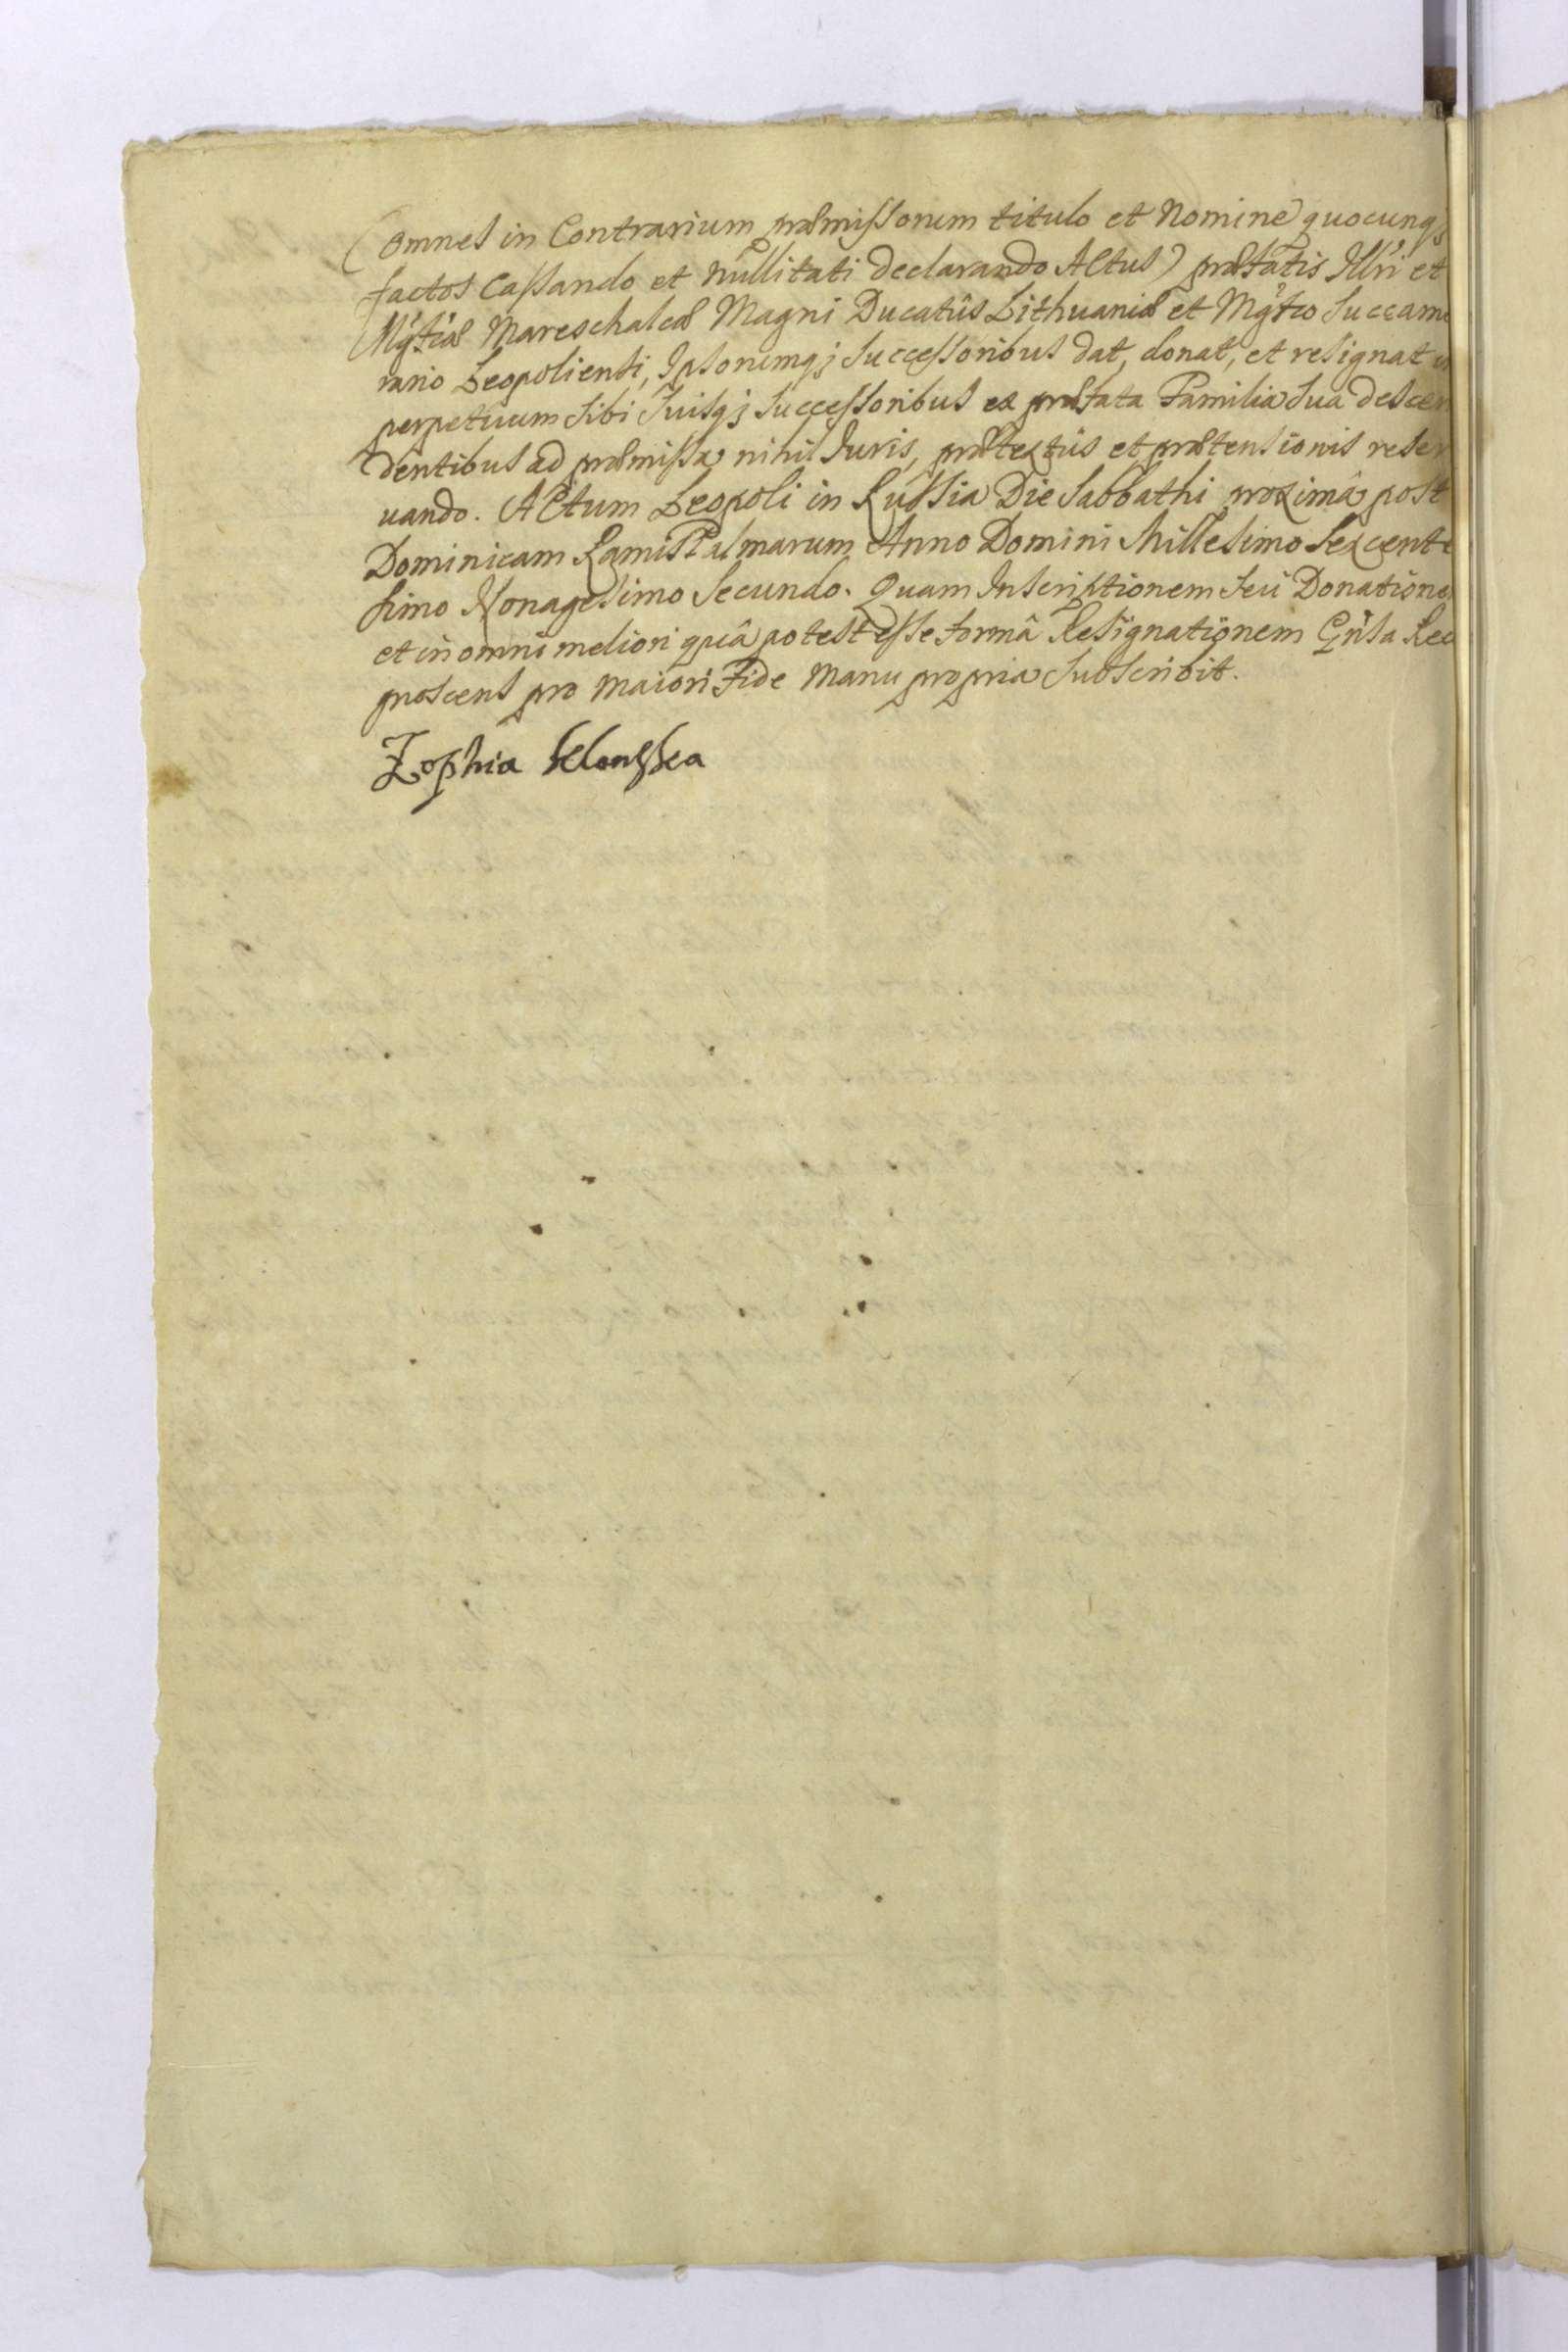 (omnes in Contrarium præmissorum titulo et Nomine quocunqꝫ
factos Cassando et Nullitati declarando Actus) præfatis Illri et
Mgťcæ Mareschalcæ Magni Ducatûs Lithuaniæ et Mgťco Succame
rario Leopoliensi, Ipsorumqꝫ Successoribus dat, donat, et resignat in
perpetuum Sibi Suisqꝫ Successoribus ex præfata Familia Sua descen
dentibus ad præmissa nihil Iuris, prætextûs et prætensionis reser
uando. Actum Leopoli in Russia Die Sabbathi proximâ post
Dominicam Ramis Palmarum Anno Domini Millesimo Sexcente
simo Nonagesimo Secundo. Quam Inscriptionem Seu Donatione
et in omni meliori quâ potest esse formâ Resignationem Gnsa Rec
gnoscens pro maiori Fide Manu propria Subscribit.
Zophia